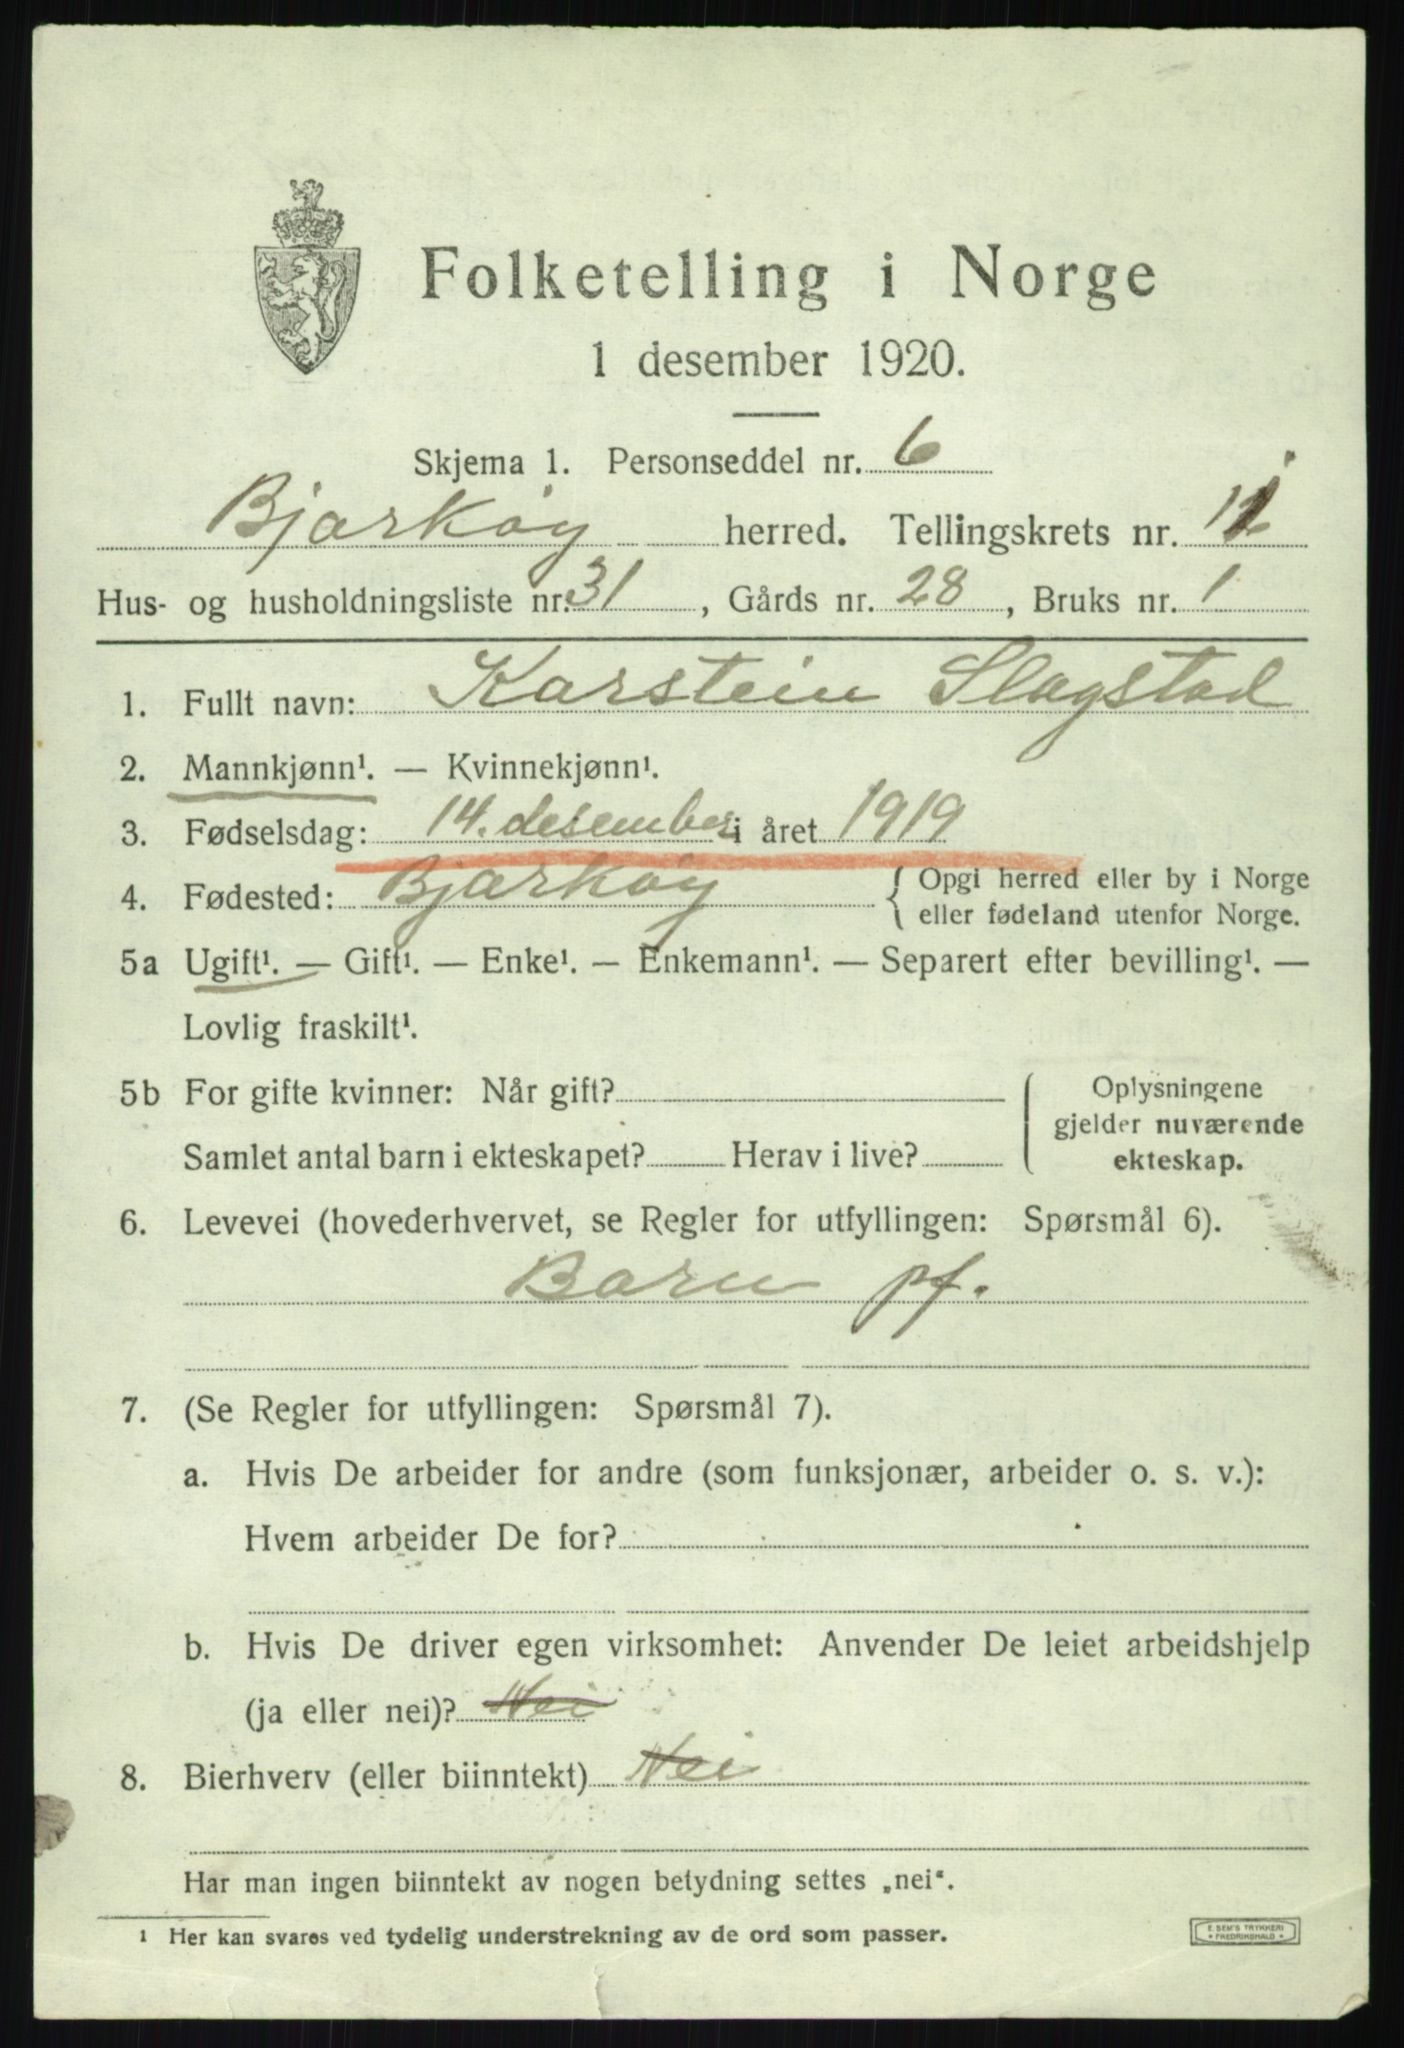 Folketelling i Norge
1 desember 1920.
Skjema 1. Personseddel nr. 6
Bjarkøy herred. Tellingskrets nr.
Hus- og husholdningsliste nr. 31, Gårds nr. 28, Bruks nr. 1
1. Fullt navn: Karstein Slagstad
2. Mannkjønn¹. — Kvinnekjønn¹.
3. Fødselsdag: 14. desember i året 1919
4. Fødested: Bjarkøy { Opgi herred eller by i Norge
eller fødeland utenfor Norge.
5a Ugift¹. — Gift¹. — Enke¹. — Enkemann¹. — Separert efter bevilling¹. —
Lovlig fraskilt¹.
5b For gifte kvinner: Når gift?
Samlet antal barn i ekteskapet? Herav i live?
Oplysningene
gjelder nuværende
ekteskap.
6. Levevei (hovederhvervet, se Regler for utfyllingen: Spørsmål 6).
Barn pf.
7. (Se Regler for utfyllingen: Spørsmål 7).
a. Hvis De arbeider for andre (som funksjonær, arbeider o. s. v.):
Hvem arbeider De for?
b. Hvis De driver egen virksomhet: Anvender De leiet arbeidshjelp
(ja eller nei)? Nei
8. Bierhverv (eller biinntekt) Nei
Har man ingen biinntekt av nogen betydning settes „nei“.
¹ Her kan svares ved tydelig understrekning av de ord som passer.
E. SEM'S TRYKKERI
FREDRIKSHALD